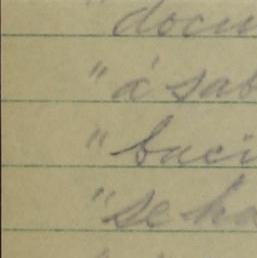 " docu
" á sab
" baci
" se ha